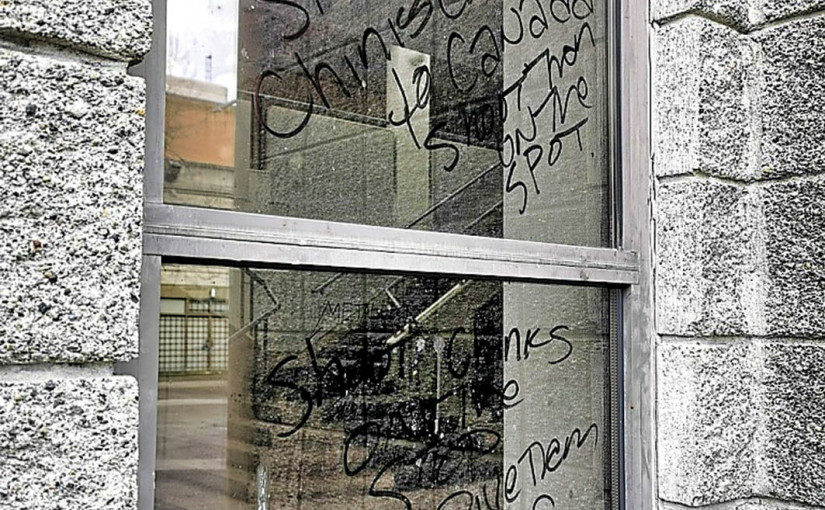 Chinks
to Canada
shoot them
on the
SPOT
METH
Shoot Chinks
on the
SPOT
Give Them